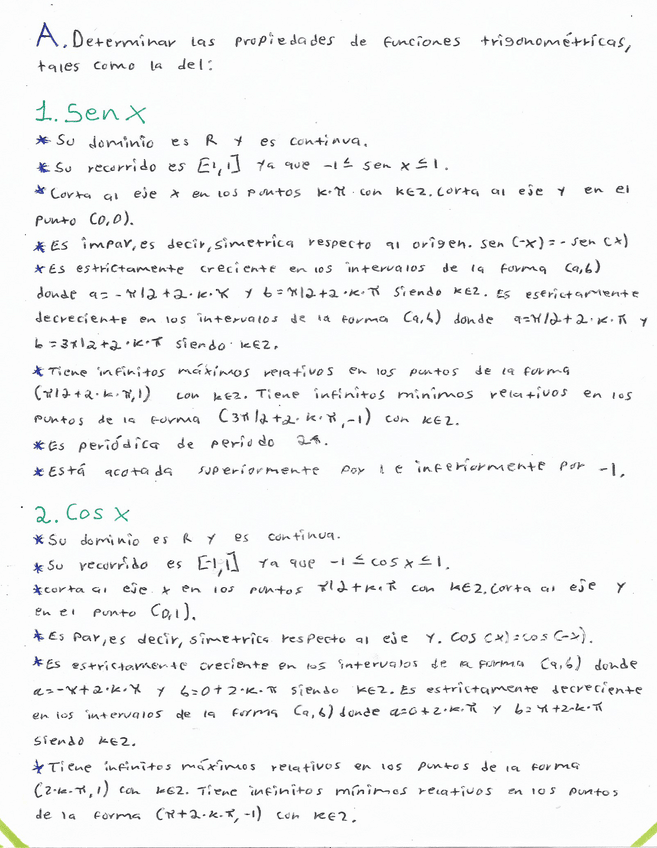 A. Determinar las propiedades de funciones trigonométricas,
tales como la del:
1. Sen X
* Su dominio es R y es continua.
* Su recorrido es [-1,1] ya que -1 ≤ sen x ≤ 1.
* Corta al eje x en los puntos k·π con k∈Z. Corta al eje y en el
punto (0,0).
* Es impar, es decir, simetrica respecto al origen. sen (-x) = - sen (x)
* Es estrictamente creciente en los intervalos de la forma (a,b)
donde a= -π/2+2·k·π y b=π/2+2·k·π siendo k∈Z. Es eserictamente
decreciente en los intervalos de la forma (a,b) donde a=π/2+2·k·π y
b=3π/2+2·k·π siendo k∈Z.
* Tiene infinitos máximos relativos en los puntos de la forma
(π/2+2·k·π,1) con k∈Z. Tiene infinitos mínimos relativos en los
puntos de la forma (3π/2+2·k·π,-1) con k∈Z.
* Es periódica de periodo 2π.
* Está acotada superiormente por 1 e inferiormente por -1.
2. Cos X
* Su dominio es R y es continua.
* Su recorrido es [-1,1] ya que -1 ≤ cos x ≤ 1.
* corta al eje x en los puntos π/2+k·π con k∈Z. Corta al eje y
en el punto (0,1).
* Es par, es decir, simetrica respecto al eje y. cos (x)=cos (-x).
* Es estrictamente creciente en los intervalos de la forma (a,b) donde
a=-π+2·k·π y b=0+2·k·π siendo k∈Z. Es estrictamente decreciente
en los intervalos de la forma (a,b) donde a=0+2·k·π y b=π+2·k·π
siendo k∈Z.
* Tiene infinitos máximos relativos en los puntos de la forma
(2·k·π,1) con k∈Z. Tiene infinitos mínimos relativos en los puntos
de la forma (π+2·k·π,-1) con k∈Z.